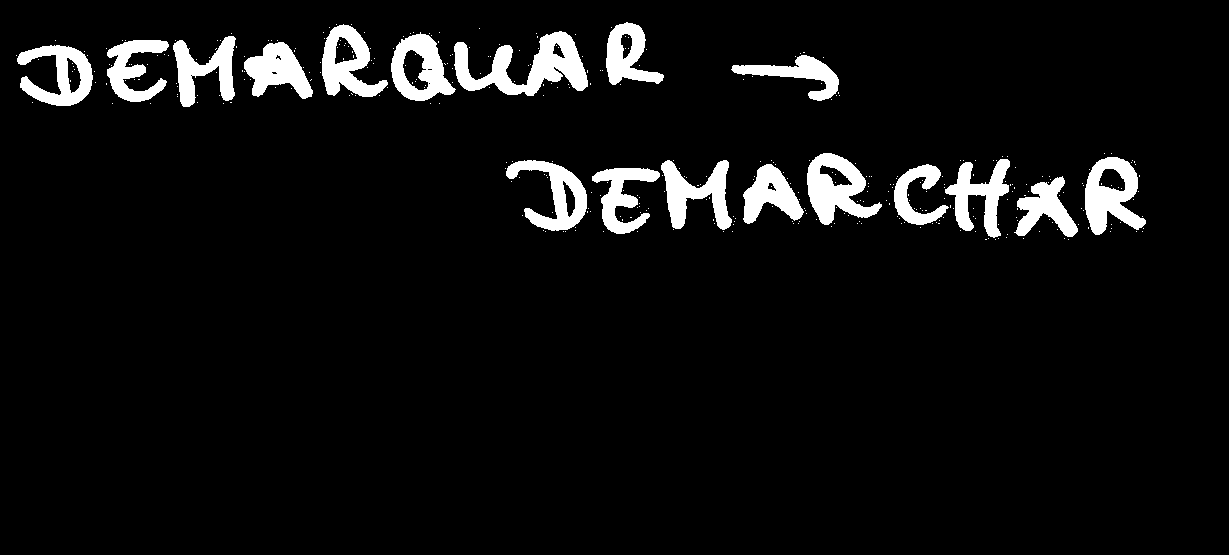 DEMARQUAR →
DEMARCHAR